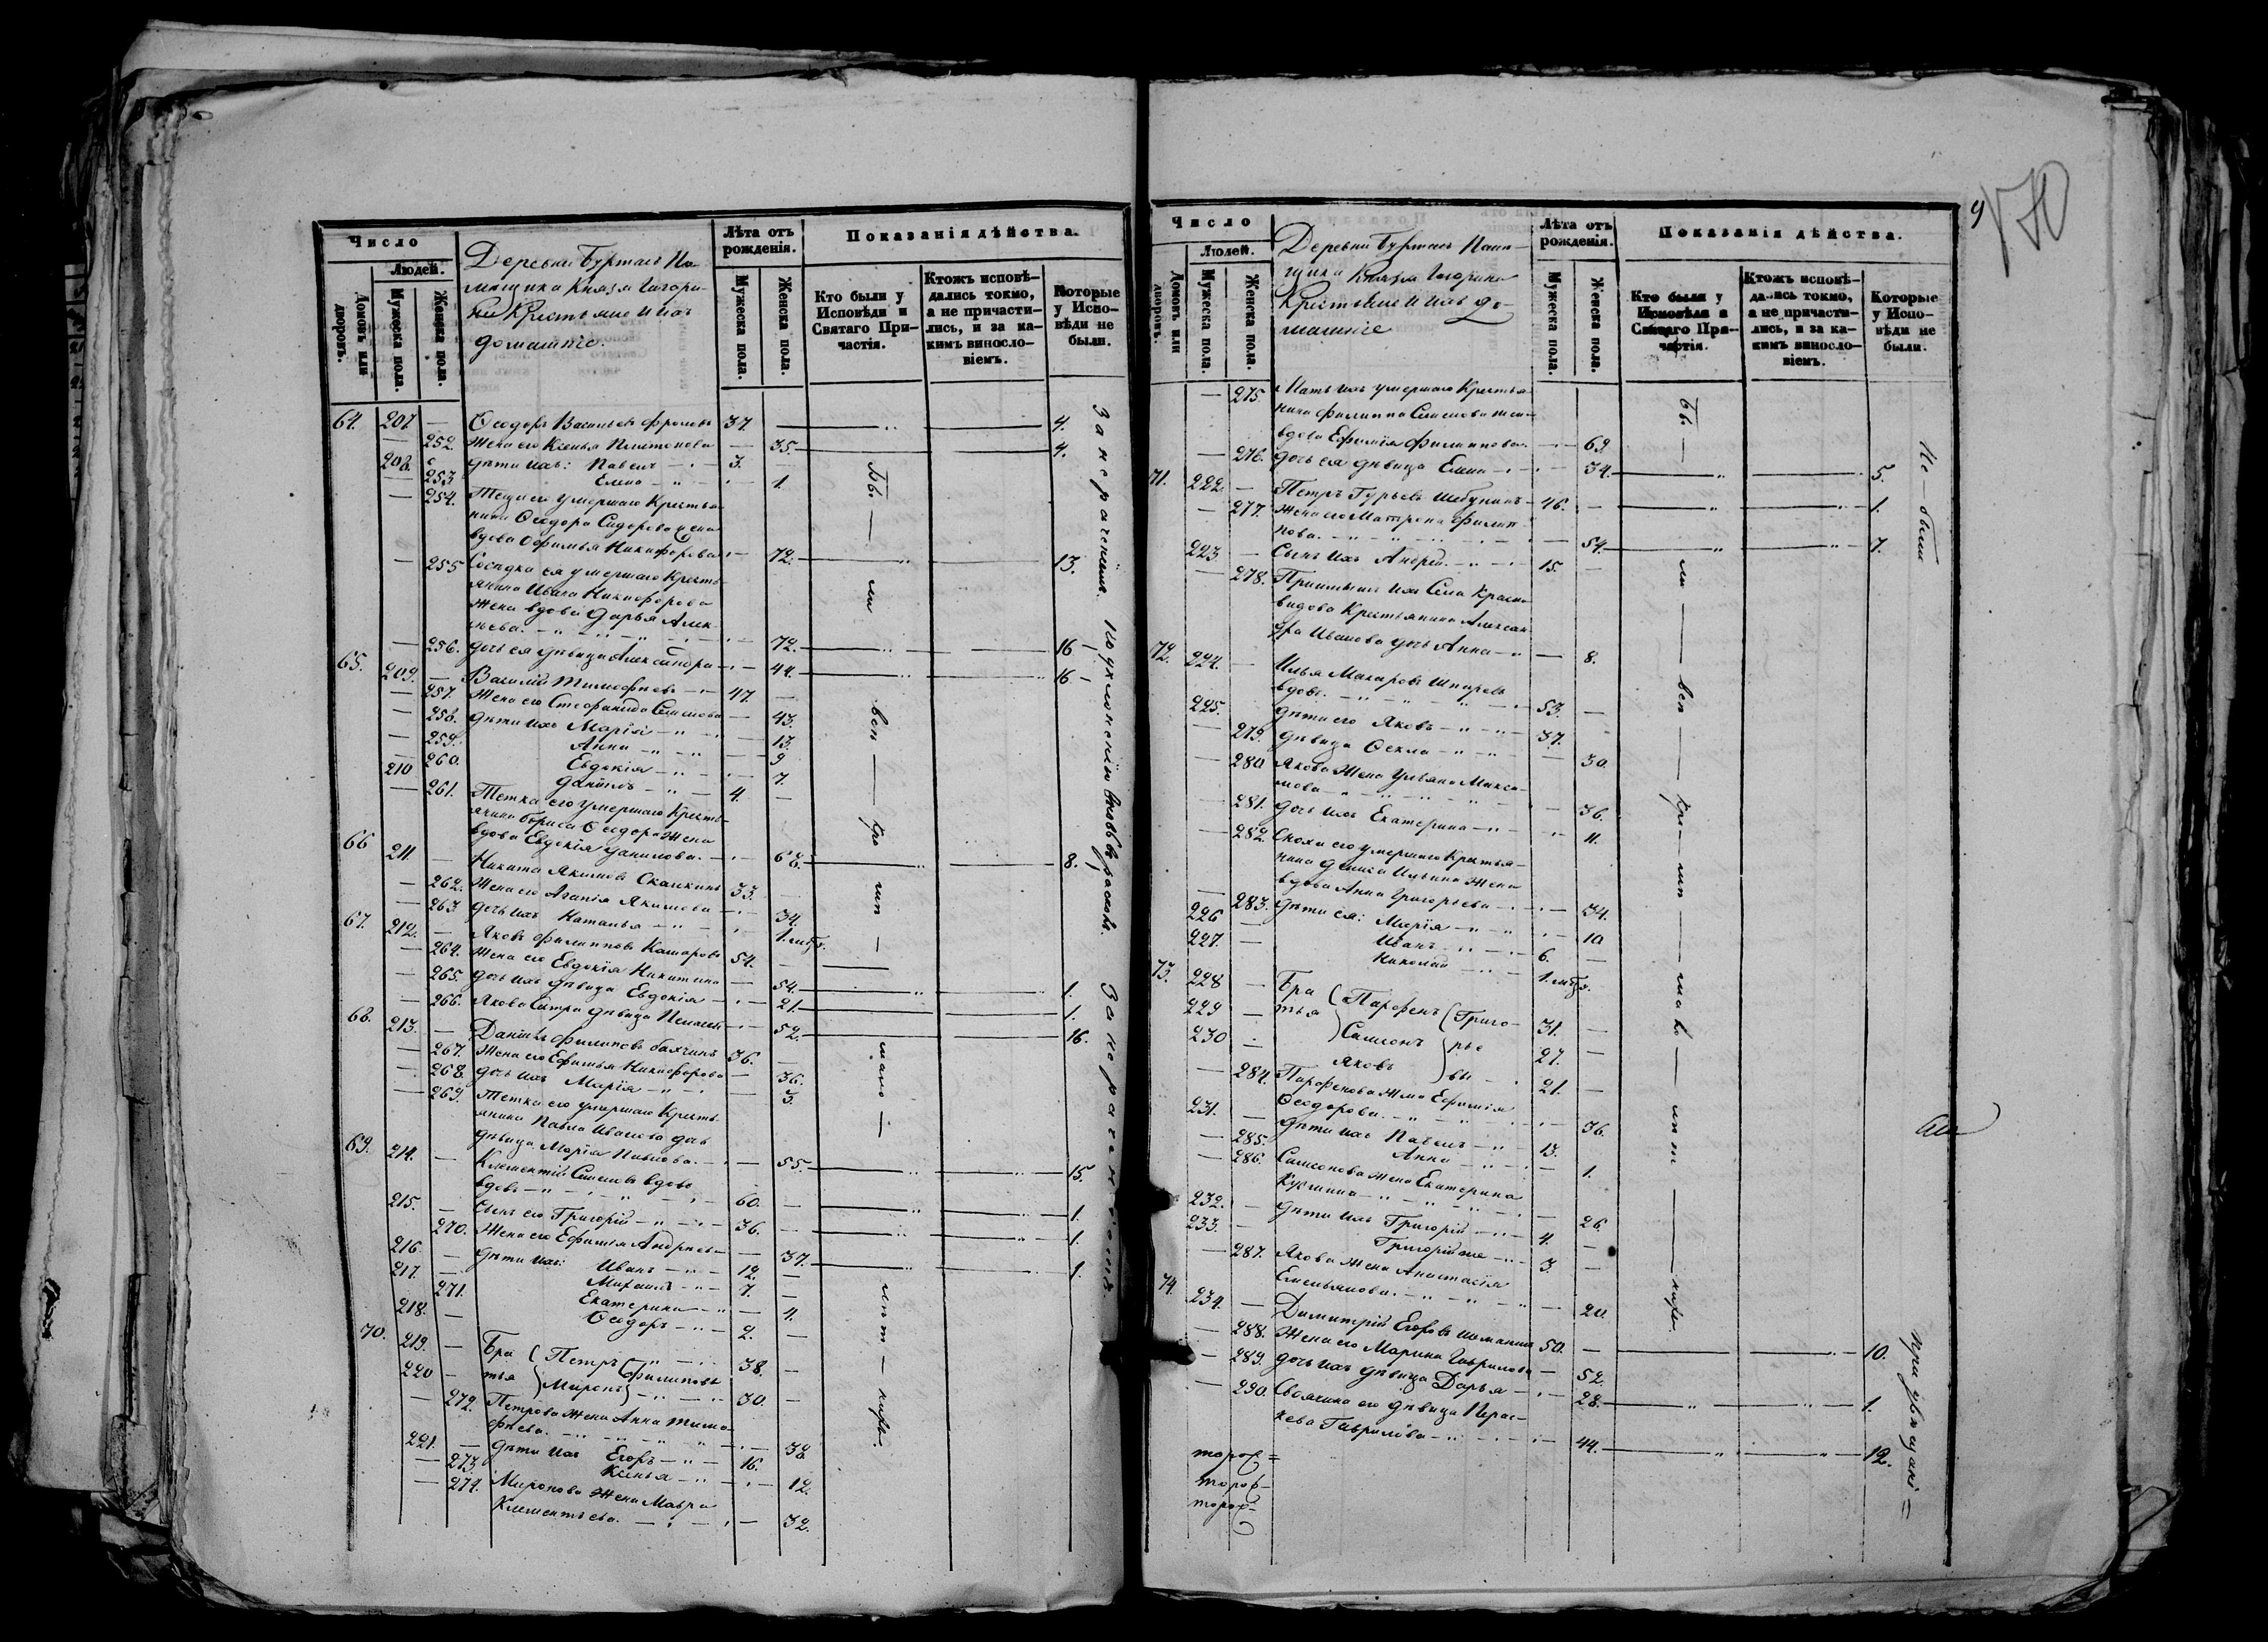 Число
Людей.
Домовъ или дворовъ.
Мужеска пола.
Женска пола.
Деревни Буртас По-
мѣщика Князя Гагари-
на Крестьяне и ихъ
домашніе.
Лѣта отъ рожденія.
Мужеска пола.
Женска пола.
Показанія дѣйства.
Кто были у Исповѣди и Святаго Причастія.
Ктожъ исповѣдались токмо, а не причастились, и за какимъ винословіемъ.
Которые у Исповѣди не были.
64. 207. — Ѳеодоръ Васильевъ Фроловъ 37. — 4.
— 252. Жена его Ксенья Платонова — 35. 4.
208. дѣти ихъ: Павелъ 3.
— 253 Елена — 1.
— 254. Теща его умершаго Крестья-
нина Ѳеодора Сидорова жена
вдова Офимья Никифорова — 72. 13.
— 255 Сосѣдка ея умершаго Кресть-
янина Ивана Никифорова
жена вдова Дарья Алек-
ѣева. — 72. 16
— 256. дочь ея дѣвица Александра — 44. 16
65. 209. — Василій Тимофѣевъ 47. —
— 257. Жена его Стефанида Семенова — 43.
— 258. дѣти ихъ Марія — 13.
— 259. Анна — 9
— 260. Евдокія — 7.
210 Даніилъ 4. —
— 261. Тетка его умершаго Кресть-
янина Бориса Ѳеодора жена
вдова Евдокія Данилова. — 68. 8.
66 211. — Никита Якимовъ Скалкинъ 33. —
— 262. Жена его Агапія Якимова — 34.
— 263 дочь ихъ Наталья — 1.
67. 212. — Яковъ Филипповъ Комаровъ 54. —
— 264. Жена его Евдокія Никитина — 54. 1.
— 265. дочь ихъ дѣвица Евдокія — 21. 1.
— 266. Якова Сестра дѣвица Пелагея — 52. 16.
68. 213. — Даніилъ Филиповъ 36. —
— 267. Жена его Ефимья Никифорова — 36.
— 268. дочь ихъ Марія — 3.
— 269. Тетка его умершаго Кресть-
янина Павла Иванова дочь
дѣвица Марія Павлова. — 55. 15.
69. 214. — Климентій Семеновъ вдовъ
вдовъ 60. — 1.
215. — Сынъ его Григорій 36. — 1.
270. Жена его Ефимія Андреева — 37. 1.
216 — дѣти ихъ: Иванъ 12. —
217. — Михаилъ 7. —
271. Екатерина — 4.
218. — Ѳеодоръ 2. —
70. 219. — Бра ( Петръ ( Филиповы 38. —
220 — тья ) Миронъ ) 30. —
— 272. Петрова жена Анна Тимо-
фѣева. — 38
221. — дѣти ихъ Егоръ 16.
— 273 Ксенья — 12.
— 274. Миронова жена Мавра
Климентьева. — 32.
Бы — ли — у — Святаго
За нераченіемъ.
За нераченіемъ.
Число
Людей.
Домовъ или дворовъ.
Мужеска пола.
Женска пола.
Деревни Буртас Помѣ-
щика Князя Гагарина
Крестьяне и ихъ до-
машніе
Лѣта отъ рожденія.
Мужеска пола.
Женска пола.
Показанія дѣйства.
Кто были у Исповѣди и Святаго Причастія.
Ктожъ исповѣдались токмо, а не причастились, и за какимъ винословіемъ.
Которые у Исповѣди не были.
9
— 275 Мать ихъ умершаго Крестья-
нина Филиппа Семенова жена
вдова Ефимія Филиппова. — 69
— 276. дочь ея дѣвица Елена — 34. 5.
71. 222. — Петръ Гурьевъ 46. — 1.
— 277. Жена его Матрона Филип-
пова. — 54. 7.
223 — Сынъ ихъ Андрей. 15. —
— 278. Пріимышъ ихъ Села Красно-
видова Крестьянина Алексан-
дра Иванова дочь Анна — 8.
72. 224. — Илья Макаровъ
вдовъ. 53. —
225. дѣти его Яковъ 37.
— 279. дѣвица Ѳекла — 30.
— 280 Якова Жена Ульяна Макси-
мова — 36.
— 281. дочь ихъ Екатерина — 11.
— 282. Сноха его умершаго Крестья-
нина Дениса Ильина жена
вдова Анна Григорьева — 34.
— 283. дѣти ея: Марія — 10
226 — Иванъ 6. —
227. — Николай 1.
73. 228 — Бра ( Парфенъ ( Григо- 31. —
229 — тья ) Самсонъ ) рье 27. —
230 Яковъ ) вы 21. —
— 284. Парфенова жена Ефимія
Ѳеодорова. — 36.
231. — дѣти ихъ Павелъ 13.
— 285. Анна — 1.
— 286. Самсонова жена Екатерина
Кузмина — 26.
232. — дѣти ихъ Григорій 4. —
233. — Григорій же 3. —
— 287. Якова жена Анастасія
Емельянова. — 20.
74. 234. — Димитрій Егоровъ 50. — 10.
— 288. Жена его Марина Гаврилова — 52.
— 289. дочь ихъ дѣвица Дарья — 28. 1.
— 290. Своячина его дѣвица Парас-
кева Гаврилова — 44. 12.
Бы — ли
Не — были